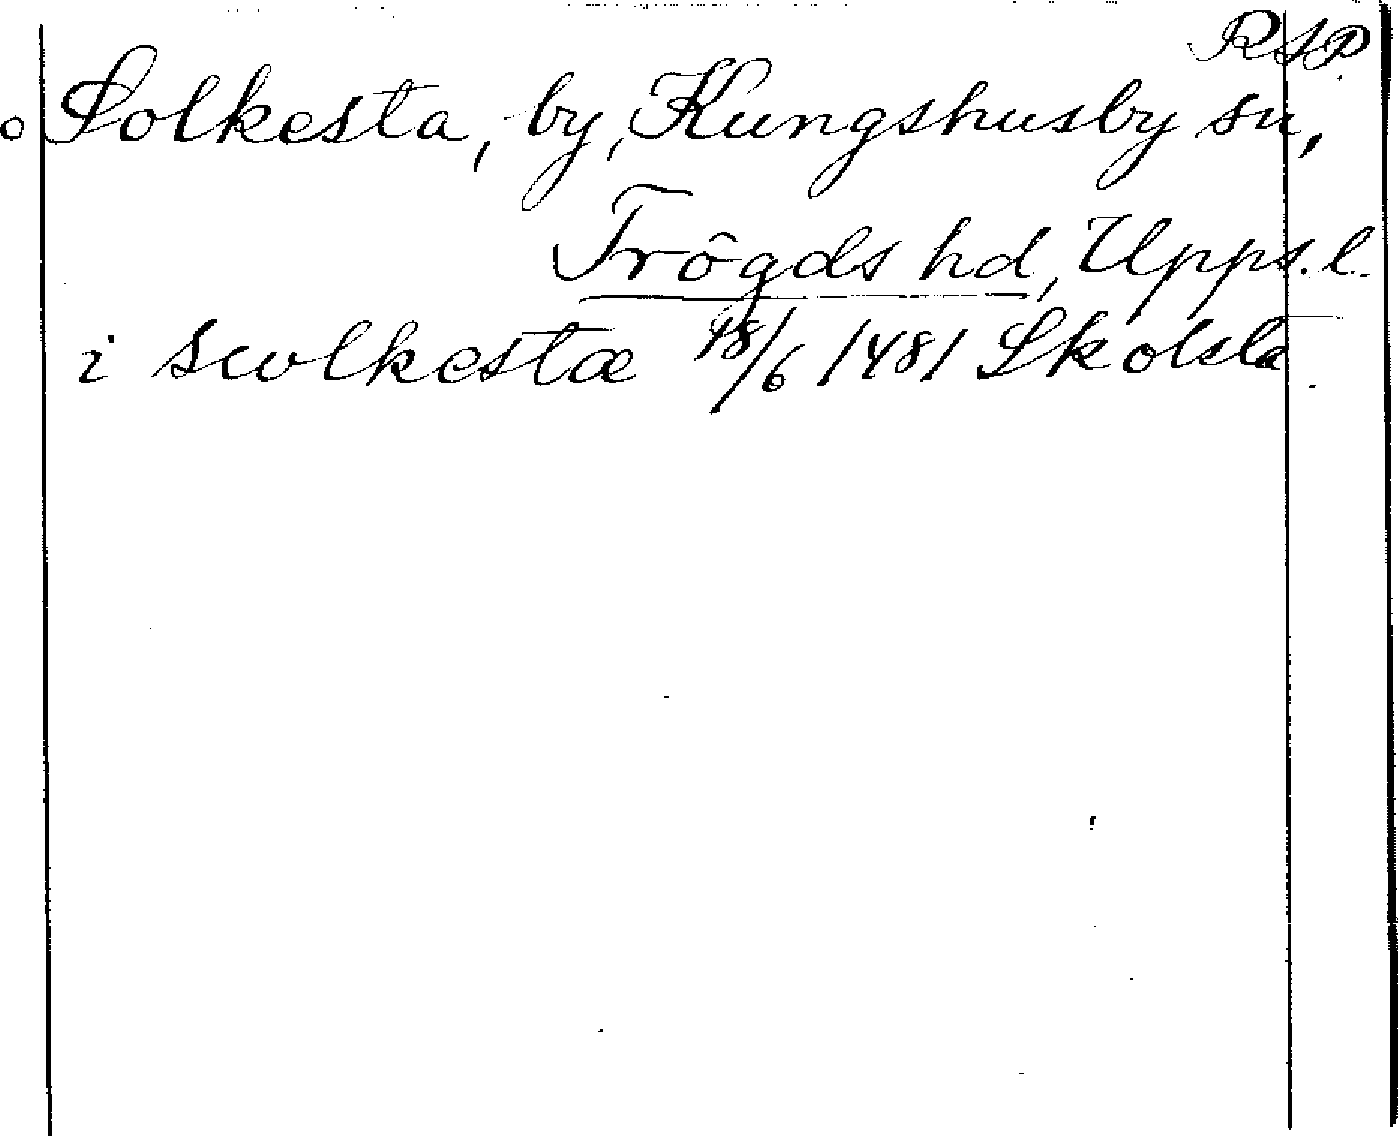 RSP.
Solkesta, by, Kungshusby sn,
Trôgds hd, Upps. l.
i swlkestæ 18/6 1481 Skolsta